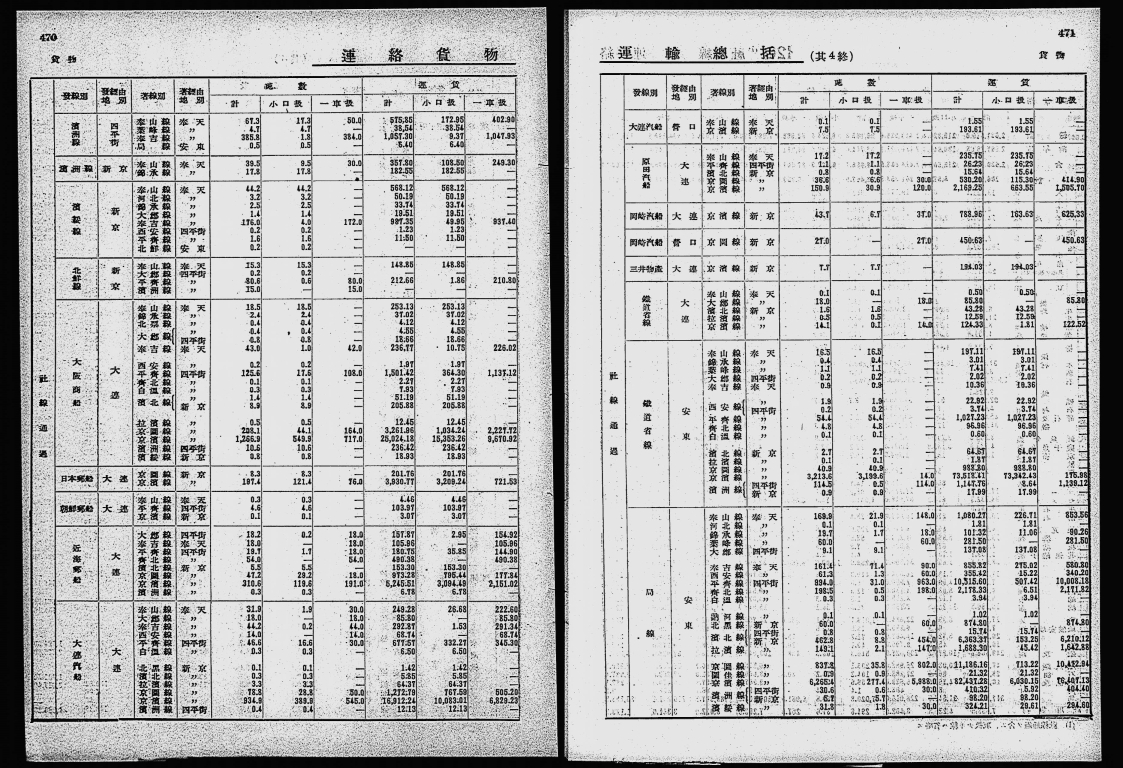 470
貨物
連絡貨物
發線別 發經由地別 著線別 著經由地別 噸數 運賃
計 小口扱 一車扱 計 小口扱 一車扱
社線通過
濱洲線 四平街
奉山線 奉天 67.3 17.3 50.0 575.85 172.95 402.90
葉峰線 〃 4.7 4.7 — 38.54 38.54 —
奉吉線 〃 385.8 1.8 384.0 1,057.30 9.37 1,047.93
局線 安東 0.5 0.5 — 6.40 6.40 —
濱洲線 新京
奉山線 奉天 39.5 9.5 30.0 357.80 108.50 249.30
錦承線 〃 17.8 17.8 — 182.55 182.55 —
濱綏線 新京
奉山線 奉天 44.2 44.2 — 568.12 568.12 —
河北線 〃 3.2 3.2 — 50.19 50.19 —
錦承線 〃 2.5 2.5 — 33.74 33.74 —
大鄭線 〃 1.4 1.4 — 19.51 19.51 —
奉吉線 〃 176.0 4.0 172.0 987.35 49.95 937.40
西安線 四平街 0.2 0.2 — 1.23 1.23 —
平齊線 〃 1.6 1.6 — 11.50 11.50 —
北鮮線 安東 0.2 0.2 —
北鮮線 新京
奉山線 奉天 15.3 15.3 — 148.85 148.85 —
大鄭線 四平街 0.2 0.2 —
平齊線 〃 80.6 0.6 80.0 212.66 1.86 210.80
濱洲線 〃 15.0 — 15.0
大阪商船 大連
奉山線 奉天 18.5 18.5 — 253.13 253.13 —
錦承線 〃 2.4 2.4 — 37.02 37.02 —
北票線 〃 0.4 0.4 — 4.12 4.12 —
大鄭線 〃 0.4 0.4 — 4.55 4.55 —
四平街 0.8 0.8 — 18.66 18.66 —
奉吉線 奉天 43.0 1.0 42.0 236.77 10.75 226.02
西安線 〃 0.2 0.2 — 1.97 1.97 —
平齊線 四平街 125.6 17.6 108.0 1,501.42 364.30 1,137.12
齊北線 〃 0.1 0.1 — 2.27 2.27 —
白溫線 〃 0.3 0.3 — 7.93 7.93 —
濱北線 〃 1.4 1.4 — 51.19 51.19 —
新京 8.9 8.9 — 205.88 205.88 —
拉濱線 〃 0.5 0.5 — 12.45 12.45 —
京圖線 〃 208.1 44.1 164.0 3,261.96 1,034.24 2,227.72
京濱線 〃 1,266.9 549.9 717.0 25,024.18 15,353.26 9,670.92
濱洲線 四平街 10.6 10.6 — 236.42 236.42 —
濱綏線 新京 0.8 0.8 — 18.93 18.93 —
日本郵船 大連
京圖線 新京 8.3 8.3 — 201.76 201.76 —
京濱線 〃 197.4 121.4 76.0 3,930.77 3,209.24 721.53
朝鮮郵船 大連
奉山線 奉天 0.3 0.3 — 4.46 4.46 —
平齊線 四平街 4.6 4.6 — 103.97 103.97 —
京濱線 新京 0.1 0.1 — 3.07 3.07 —
近海郵船 大連
大鄭線 四平街 18.2 0.2 18.0 157.87 2.95 154.92
奉吉線 奉天 18.0 — 18.0 105.96 — 105.96
平齊線 四平街 19.7 1.7 18.0 180.75 35.85 144.90
齊北線 〃 54.0 — 54.0 490.38 — 490.38
濱北線 新京 5.5 5.5 — 153.30 153.30 —
京圖線 〃 47.2 29.2 18.0 973.28 795.44 177.84
京濱線 〃 310.6 119.6 191.0 5,245.51 3,094.49 2,151.02
濱洲線 〃 0.3 0.3 — 6.78 6.78 —
大連汽船 大連
奉山線 奉天 31.9 1.9 30.0 249.28 26.68 222.60
大鄭線 〃 18.0 — 18.0 85.80 — 85.80
奉吉線 〃 44.2 0.2 44.0 292.87 1.53 291.34
西安線 〃 14.0 — 14.0 68.74 — 68.74
平齊線 四平街 46.6 16.6 30.0 677.57 332.27 345.30
白溫線 〃 0.3 0.3 — 6.50 6.50 —
北黑線 新京 0.1 0.1 — 1.42 1.42 —
濱北線 〃 0.3 0.3 — 5.85 5.85 —
拉濱線 〃 3.3 3.3 — 64.37 64.37 —
京圖線 〃 78.8 28.8 50.0 1,272.79 767.59 505.20
京濱線 〃 934.9 389.9 545.0 16,912.24 10,083.01 6,829.23
濱洲線 四平街 0.4 0.4 — 12.13 12.13 —
471
貨物
運輸總括 (其4終)
發線別 發經由地別 著線別 著經由地別 噸數 運賃
計 小口扱 一車扱 計 小口扱 一車扱
社線通過
大連汽船 營口
奉山線 奉天 0.1 0.1 — 1.55 1.55 —
京濱線 新京 7.5 7.5 — 193.61 193.61 —
原田汽船 大連
奉山線 奉天 17.2 17.2 — 235.75 235.75 —
平齊線 四平街 1.1 1.1 — 26.23 26.23 —
濱北線 新京 0.8 0.8 — 15.64 15.64 —
京圖線 〃 36.6 6.6 30.0 530.20 115.30 414.90
京濱線 〃 150.9 30.9 120.0 2,169.25 663.55 1,505.70
岡崎汽船 大連 京濱線 新京 43.7 6.7 37.0 788.96 163.63 625.33
岡崎汽船 營口 京圖線 新京 27.0 — 27.0 450.63 — 450.63
三井物產 大連 京濱線 新京 7.7 7.7 — 194.03 194.03 —
鐵道省線 大連
奉山線 奉天 0.1 0.1 — 0.50 0.50 —
大鄭線 〃 18.0 — 18.0 85.80 — 85.80
濱北線 新京 1.6 1.6 — 43.28 43.28 —
拉濱線 〃 0.5 0.5 — 12.59 12.59 —
京濱線 〃 14.1 0.1 14.0 124.33 1.81 122.52
鐵道省線 安東
奉山線 奉天 16.5 16.5 — 197.11 197.11 —
錦承線 〃 0.4 0.4 — 3.01 3.01 —
葉峰線 〃 1.1 1.1 — 7.41 7.41 —
大鄭線 四平街 0.2 0.2 — 2.02 2.02 —
奉吉線 奉天 0.9 0.9 — 10.36 10.36 —
西安線 〃 1.9 1.9 — 22.92 22.92 —
四平街 0.2 0.2 — 3.74 3.74 —
平齊線 〃 54.4 54.4 — 1,027.23 1,027.23 —
齊北線 〃 4.8 4.8 — 96.96 96.96 —
白溫線 〃 0.1 0.1 — 0.60 0.60 —
濱北線 新京 2.7 2.7 — 64.67 64.67 —
拉濱線 〃 0.1 0.1 — 1.87 1.87 —
京圖線 〃 40.9 40.9 — 988.80 988.80 —
京濱線 〃 3,213.6 3,199.6 14.0 73,518.41 73,342.43 175.98
濱洲線 四平街 114.5 0.5 114.0 1,147.76 8.64 1,139.12
新京 0.9 0.9 — 17.99 17.99 —
局線 安東
奉山線 奉天 169.9 21.9 148.0 1,080.27 226.71 853.56
河北線 〃 0.1 0.1 — 1.81 1.81 —
錦承線 〃 19.7 1.7 18.0 101.32 11.06 90.26
葉峰線 〃 60.0 — 60.0 281.50 — 281.50
大鄭線 四平街 9.1 9.1 — 137.08 137.08 —
奉吉線 奉天 161.4 71.4 90.0 855.82 275.02 580.80
西安線 〃 61.3 1.3 60.0 355.42 15.22 340.20
平齊線 四平街 994.0 31.0 963.0 10,515.60 507.42 10,008.18
齊北線 〃 198.5 0.5 198.0 2,178.33 6.51 2,171.82
白溫線 〃 0.3 0.3 — 3.94 3.94 —
訥河線 〃 0.1 0.1 — 1.02 1.02 —
北黑線 新京 60.0 — 60.0 874.80 — 874.80
濱北線 四平街 0.8 0.8 — 15.74 15.74 —
新京 462.8 8.8 454.0 6,363.37 153.25 6,210.12
拉濱線 〃 149.1 2.1 147.0 1,688.30 45.42 1,642.88
京圖線 〃 837.8 35.8 802.0 11,186.16 713.22 10,472.94
圖佳線 〃 0.9 0.9 — 21.32 21.32 —
京濱線 〃 6,265.4 277.4 5,988.0 82,437.28 6,030.15 76,407.13
濱洲線 四平街 30.6 0.6 30.0 410.32 5.92 404.40
新京 98.20 98.20 —
濱綏線 〃 31.8 1.8 30.0 324.21 29.61 294.60